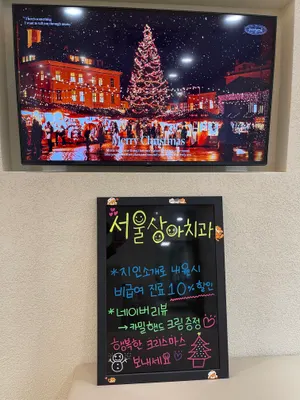 Merry Christmas
서울상아치과
*지인소개로 내원시
비급여 진료 10% 할인
*네이버리뷰
→카밀핸드 크림증정
행복한 크리스마스
보내세요